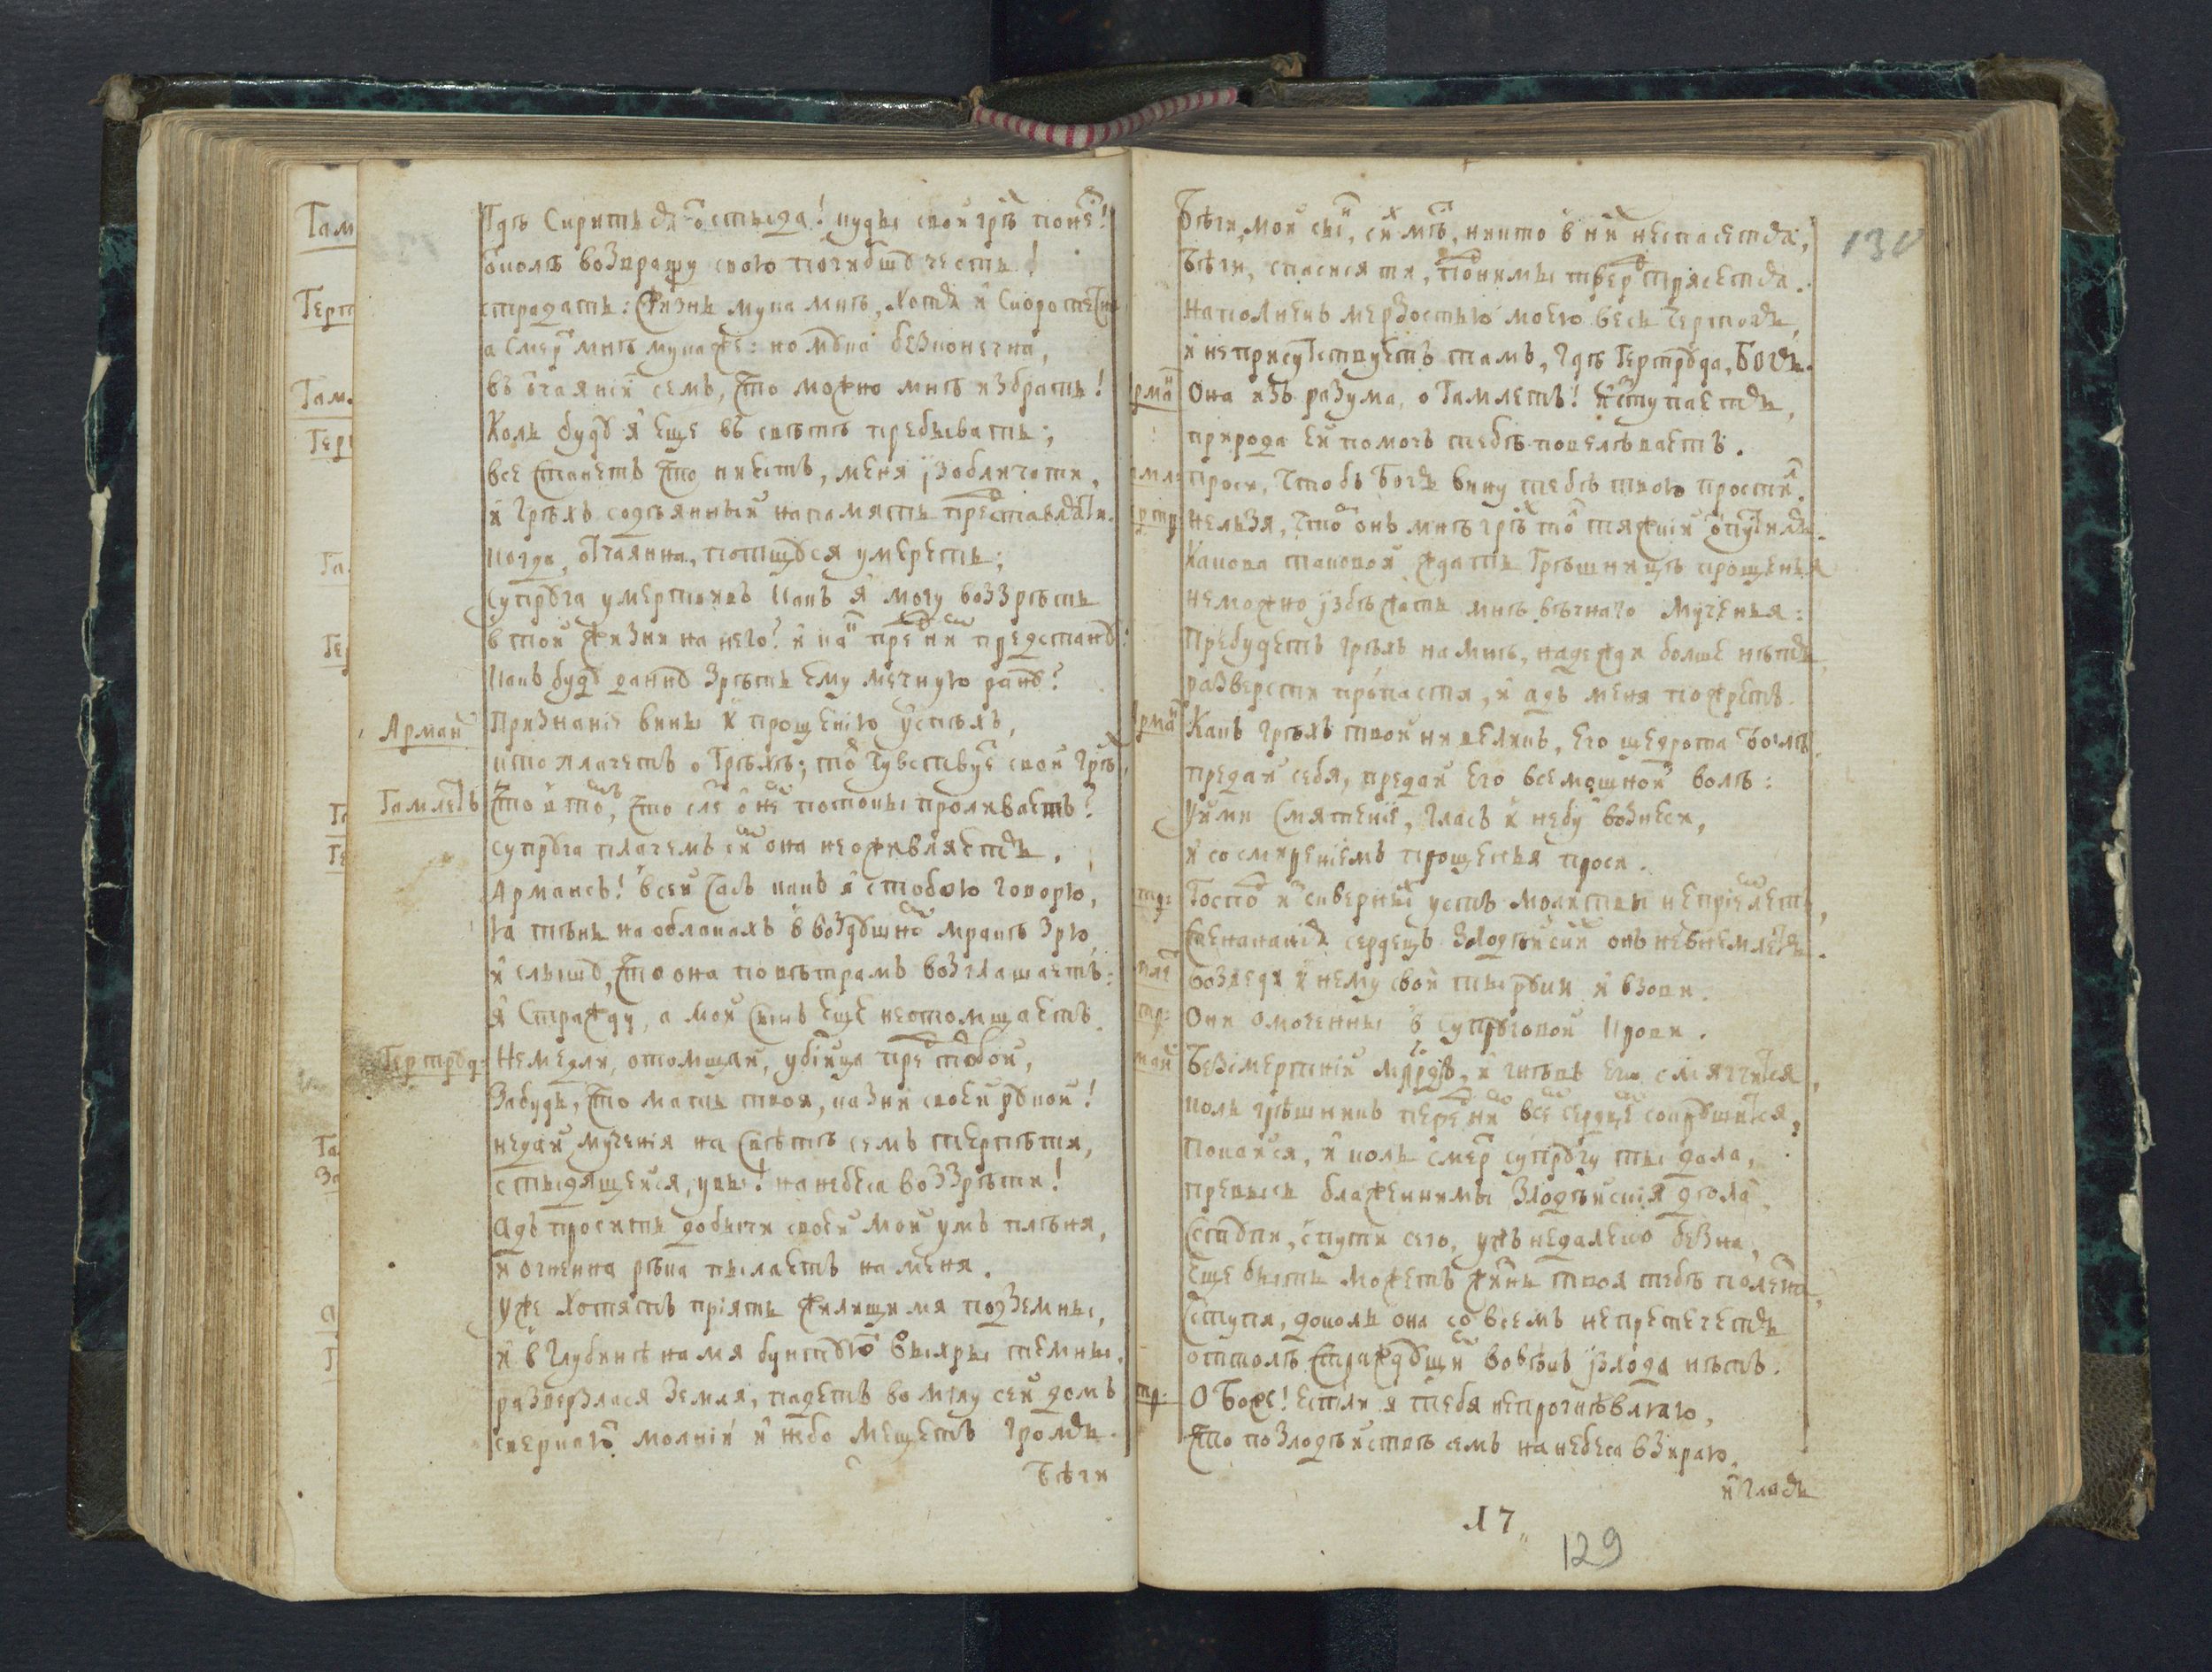 Гдѣ скрытьсѧ ѿ стыда! куды свой грѣх понесть!
Ѿколѣ возвращу свою погибшꙋ честь!
страдать: жизнь мука мнѣ, хотя и скоротечна
а смерть мнѣ мукаже: но мꙋка безконечна,
въ ѿчаяніи семъ, что можно мнѣ избрать!
Коль будꙋ я еще въ свѣтѣ пребывать;
все станетъ что ниесть, меня изобличати,
и грѣхъ содѣянный напомять представлѧти.
когда, отчаянна, потщꙋся умереть;
супрꙋга умертвивъ какъ я могу воззрѣть
в той жизни на него? и какъ пред ним предстанꙋ?
какъ будꙋ раннꙋ зрѣть ему мечную ранꙋ?
Арманс Признаніе вины к прощенію успѣхъ,
кто плачетъ о грѣхѣ; тот чувствуетъ свой грѣх,
Гамлетъ Что в томъ, что слез она потоки проливаетъ?
супрꙋга плачемъ сим она неоживляетъ.
Армансъ! в сей часъ какъ я с тобою говорю,
Ея тѣнь на облакахъ в воздꙋшном мракѣ зрю,
и слышꙋ, что она по вѣтрамъ возглашаетъ:
я стражду, а мой сынъ еще неотомщаетъ.
Гертрꙋд: Немедли, отомщай, убійца пред тобой,
Забудь, что мать твоя, казни своей рꙋкой!
недай мученія на свѣтѣ семъ терпѣти,
стыдящейся, увы! на небеса воззрѣти!
Адъ проситъ добычи своей мой умъ плѣня,
и огненна рѣка пылаетъ на меня.
уже хотятъ пріять жилищи мя подземны,
и в глубинѣ на мя бунтꙋютъ вихры темны.
разверзлася земля, падетъ во мглу сей домъ
сверкаютъ молніи и небо мещетъ громъ.
Бѣги
130
Бѣги, мой сын, сих мѣст, никто в них неспасется,
Бѣги, спасися ты, под ними твердь трясется.
Наполненъ мерзостью моею весь чертогъ,
и неприсутствуетъ тамъ, гдѣ Гертрꙋда, Богъ.
рман Она изъ разума, о Гамлетъ! изступаетъ,
природа ей помочь тебѣ повелѣваетъ.
мл: проси, чтобъ Богъ вину тебѣ твою простил.
ртр нельзя, чтоб онъ мнѣ грѣх тот тяжкій ѿпустилъ.
Какова таковой ждать грѣшницѣ прощенья
неможно избѣжать мнѣ вѣчнаго мученья:
Пребудетъ грѣхъ на мнѣ, надежди болше нѣтъ,
разверсти пропасти, и адъ меня пожретъ.
рман Какъ грѣхъ твой ни великъ, его щедрота болѣ
предай себя, предай его всемощной волѣ:
Уйми смятеніе, гласъ к небу вознеси,
и со смиреніемъ прощенья проси.
тр: Господь из скверных устъ молитвы непріемлетъ,
стенанія сердецъ злодѣйских онъ невнемлетъ.
млт Возведи к нему свои ты рꙋки и взови.
тр: Они омоченны в супрꙋговой крови.
ман Безсмертній милосердъ, и гнѣвъ его смягчится,
коль грѣшникъ перед ним всем сердцемъ сокрꙋшится,
Покайся, и коль смерть супрꙋгу ты дала,
превысь блаженнимы злодѣйскія дѣла,
Ступи, с пути сего, ужъ недалеко бездна,
Еще быть можетъ жизнь твоя тебѣ полезна,
Ступи, доколь она совсемъ непретечетъ
оттолѣ страждꙋщим вовѣкъ изхода нѣтъ.
тр: О Боже! естли я тебя непрогнѣвляю,
что по злодѣйствѣ семъ на небеса взираю,
и гладъ
Л 7
129